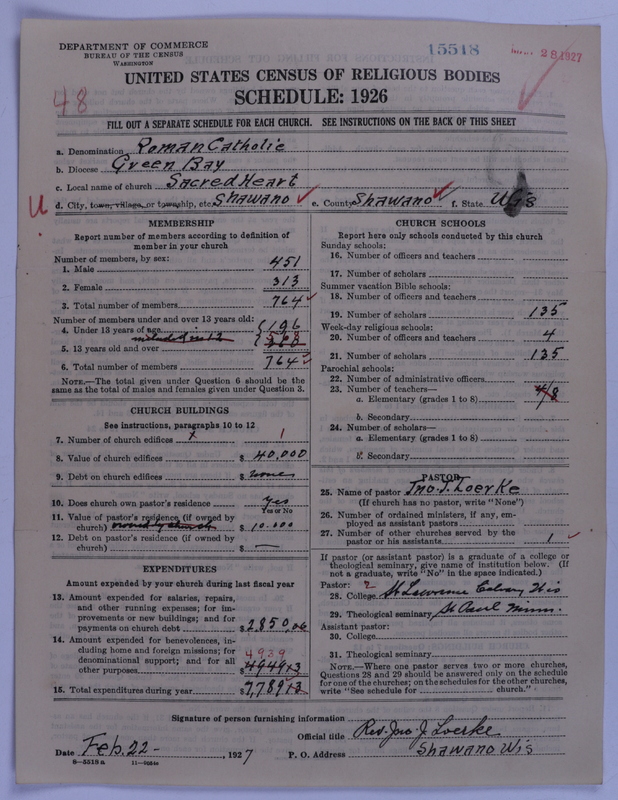 DEPARTMENT OF COMMERCE
BUREAU OF THE CENSUS
WASHINGTON
15518
28 1927
UNITED STATES CENSUS OF RELIGIOUS BODIES
48
SCHEDULE: 1926
FILL OUT A SEPARATE SCHEDULE FOR EACH CHURCH. SEE INSTRUCTIONS ON THE BACK OF THIS SHEET
a. Denomination Roman Catholic
b. Diocese Green Bay
c. Local name of church Sacred Heart
U. d. City, town, village, or township, etc. Shawano e. County Shawano f. State Wis
MEMBERSHIP
Report number of members according to definition of
member in your church
Number of members, by sex:
1. Male 451
2. Female 313
3. Total number of members 764
Number of members under and over 13 years old:
4. Under 13 years of age 196
5. 13 years old and over 568
6. Total number of members 764
NOTE.—The total given under Question 6 should be the
same as the total of males and females given under Question 3.
CHURCH BUILDINGS
See instructions, paragraphs 10 to 12
7. Number of church edifices 1
8. Value of church edifices $ 40,000
9. Debt on church edifices $ none
10. Does church own pastor's residence Yes
Yes or No
11. Value of pastor's residence (if owned by
church) owned by church $ 10.000
12. Debt on pastor's residence (if owned by
church) $ —
EXPENDITURES
Amount expended by your church during last fiscal year
13. Amount expended for salaries, repairs,
and other running expenses; for im-
provements or new buildings; and for
payments on church debt $ 2850,06
14. Amount expended for benevolences, in-
cluding home and foreign missions; for
denominational support; and for all 4939
other purposes $ 4949 x3
15. Total expenditures during year $ 7,789 x3
CHURCH SCHOOLS
Report here only schools conducted by this church
Sunday schools:
16. Number of officers and teachers
17. Number of scholars
Summer vacation Bible schools:
18. Number of officers and teachers
19. Number of scholars 135
Week-day religious schools:
20. Number of officers and teachers 4
21. Number of scholars 135
Parochial schools:
22. Number of administrative officers
23. Number of teachers—
a. Elementary (grades 1 to 8) 8
b. Secondary
24. Number of scholars—
a. Elementary (grades 1 to 8)
b. Secondary
PASTOR
25. Name of pastor Jno. J. Loerke
(If church has no pastor, write "None")
26. Number of ordained ministers, if any, em-
ployed as assistant pastors
27. Number of other churches served by the
pastor or his assistants 1
If pastor (or assistant pastor) is a graduate of a college or
theological seminary, give name of institution below. (If
not a graduate, write "No" in the space indicated.)
Pastor: ?
28. College St Lawrence Calvary Wis
29. Theological seminary St Paul Minn.
Assistant pastor:
30. College
31. Theological seminary
NOTE.—Where one pastor serves two or more churches,
Questions 28 and 29 should be answered only on the schedule
for one of the churches; on the schedules for the other churches,
write "See schedule for church."
Signature of person furnishing information
Official title Rev. Jno. J. Loerke
Date Feb. 22 - , 1927 P. O. Address Shawano Wis
8—5518 a